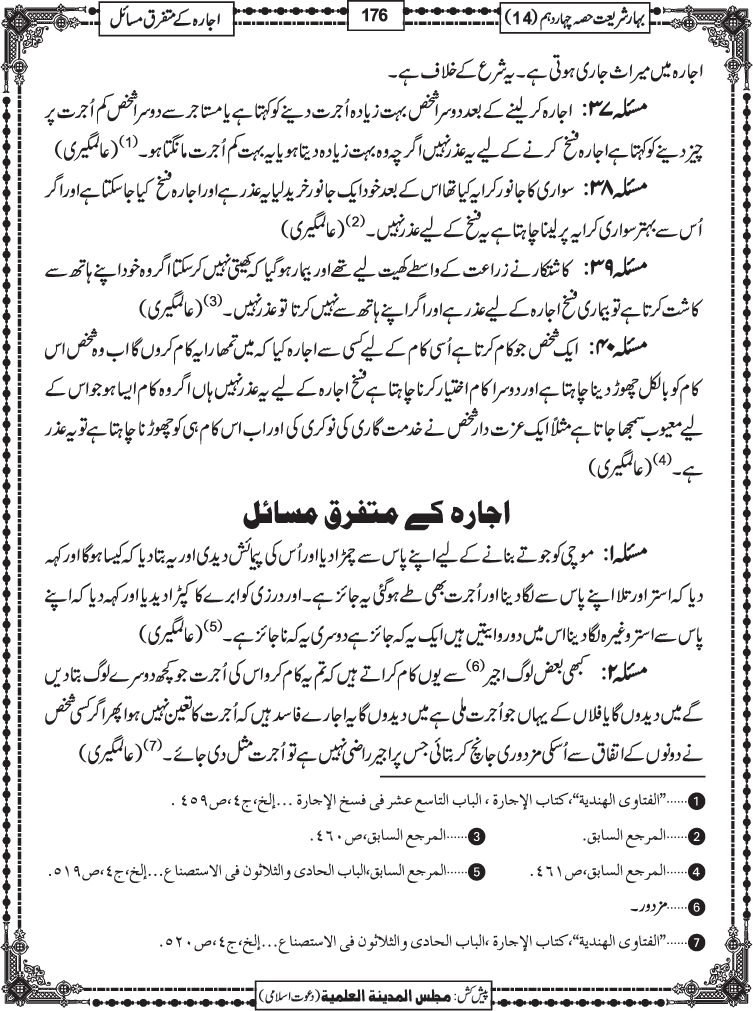 بہارِ شریعت حصہ چہاردہم (14)
176
اجارہ کے متفرق مسائل
اجارہ میں میراث جاری ہوتی ہے۔ یہ شرع کے خلاف ہے۔
مسئلہ ۳۷: اجارہ کر لینے کے بعد دوسرا شخص بہت زیادہ اُجرت دینے کو کہتا ہے یا مستاجر سے دوسرا شخص کم اُجرت پر
چیز دینے کو کہتا ہے اجارہ فسخ کرنے کے لیے یہ عذر نہیں اگرچہ وہ بہت زیادہ دیتا ہو یا یہ بہت کم اُجرت مانگتا ہو۔(1) (عالمگیری)
مسئلہ ۳۸: سواری کا جانور کرایہ کیا تھا اس کے بعد خود ایک جانور خرید لیا یہ عذر ہے اور اجارہ فسخ کیا جاسکتا ہے اور اگر
اُس سے بہتر سواری کرایہ پر لینا چاہتا ہے یہ فسخ کے لیے عذر نہیں۔(2) (عالمگیری)
مسئلہ ۳۹: کاشتکار نے زراعت کے واسطے کھیت لیے تھے اور بیمار ہوگیا کہ کھیتی نہیں کر سکتا اگر وہ خود اپنے ہاتھ سے
کاشت کرتا ہے تو بیماری فسخ اجارہ کے لیے عذر ہے اور اگر اپنے ہاتھ سے نہیں کرتا تو عذر نہیں۔(3) (عالمگیری)
مسئلہ ۴۰: ایک شخص جو کام کرتا ہے اُسی کام کے لیے کسی سے اجارہ کیا کہ میں تمھارا یہ کام کروں گا اب وہ شخص اس
کام کو بالکل چھوڑ دینا چاہتا ہے اور دوسرا کام اختیار کرنا چاہتا ہے فسخ اجارہ کے لیے یہ عذر نہیں ہاں اگر وہ کام ایسا ہو جو اس کے
لیے معیوب سمجھا جاتا ہے مثلاً ایک عزت دار شخص نے خدمت گاری کی نوکری کی اور اب اس کام ہی کو چھوڑنا چاہتا ہے تو یہ عذر
ہے۔(4) (عالمگیری)
اجارہ کے متفرق مسائل
مسئلہ ۱: موچی کو جوتے بنانے کے لیے اپنے پاس سے چمڑا دیا اور اُس کی پیمائش دیدی اور یہ بتا دیا کہ کیسا ہوگا اور کہہ
دیا کہ استر اور تلا اپنے پاس سے لگا دینا اور اُجرت بھی طے ہوگئی یہ جائز ہے۔ اور درزی کو ابرے کا کپڑا دیدیا اور کہہ دیا کہ اپنے
پاس سے استر وغیرہ لگا دینا اس میں دو روایتیں ہیں ایک یہ کہ جائز ہے دوسری یہ کہ ناجائز ہے۔(5) (عالمگیری)
مسئلہ ۲: کبھی بعض لوگ اجیر(6) سے یوں کام کراتے ہیں کہ تم یہ کام کرو اس کی اُجرت جو کچھ دوسرے لوگ بتا دیں
گے میں دیدوں گا یا فلاں کے یہاں جو اُجرت ملی ہے میں دیدوں گا یہ اجارے فاسد ہیں کہ اُجرت کا تعین نہیں ہوا پھر اگر کسی شخص
نے دونوں کے اتفاق سے اُسکی مزدوری جانچ کر بتائی جس پر اجیر راضی نہیں ہے تو اُجرت مثل دی جائے۔(7) (عالمگیری)
1 ......"الفتاوى الهندية"، كتاب الإجارة، الباب التاسع عشر فى فسخ الإجارة ...إلخ،ج٤،ص٤٥٩ .
2 ......المرجع السابق. 3 ......المرجع السابق،ص٤٦٠.
4 ......المرجع السابق،ص٤٦١. 5 ......المرجع السابق،الباب الحادى والثلاثون فى الاستصناع...إلخ،ج٤،ص٥١٩.
6 ......مزدور۔
7 ......"الفتاوى الهندية"، كتاب الإجارة ،الباب الحادى والثلاثون فى الاستصناع...إلخ،ج٤،ص٥٢٠.
پیش کش: مجلس المدینۃ العلمیۃ (دعوت اسلامی)